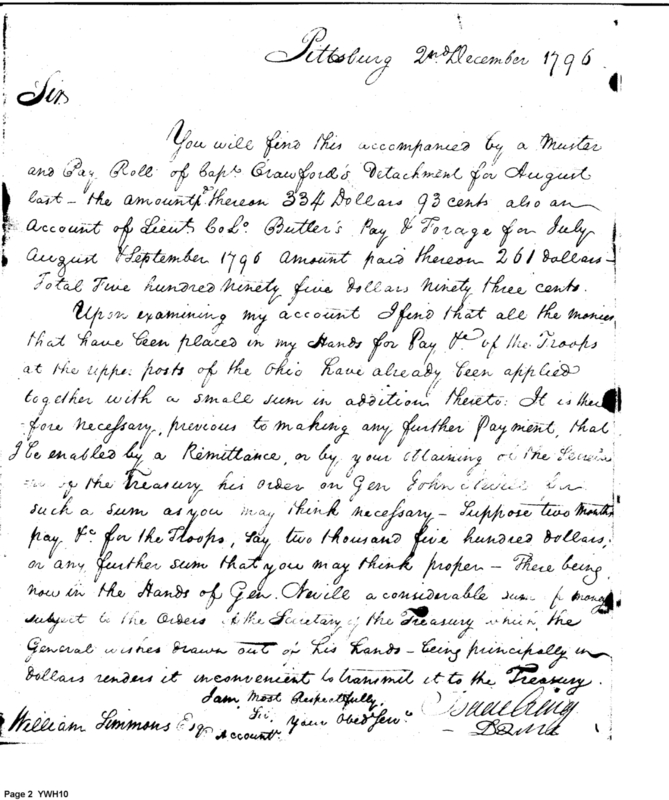 Pittsburg 2nd December 1796
Sir
You will find this accompanied by a Muster
and Pay Roll of Capt. Crawford's Detachment for August
last – the amount pd. thereon 334 Dollars 93 cents also an
Account of Lieut. Col. Butler's Pay & Forage for July
August & September 1796 amount paid thereon 261 dollars –
Total Five hundred ninety five dollars ninety three cents.
Upon examining my account I find that all the monies
that have been placed in my Hands for Pay &c of the Troops
at the upper posts of the Ohio have already been applied
together with a small sum in addition thereto: It is there
fore necessary, previous to making any further Payment, that
I be enabled by a Remittance, or by your obtaining of the
of the Treasury his order on Gen John Nevill for
such a sum as you may think necessary – Suppose two Months
pay &c for the Troops, say two thousand five hundred dollars,
or any further sum that you may think proper – There being
now in the Hands of Gen. Nevill a considerable sum of money
subject to the Orders of the Secretary of the Treasury which the
General wishes drawn out of his hands – being principally in
dollars renders it inconvenient to transmit it to the Treasury.
I am, Most Respectfully,
Sir, Your Obed Serv.
Isaac Craig
William Simmons Esq.
Accountt.
Page 2 YWH10